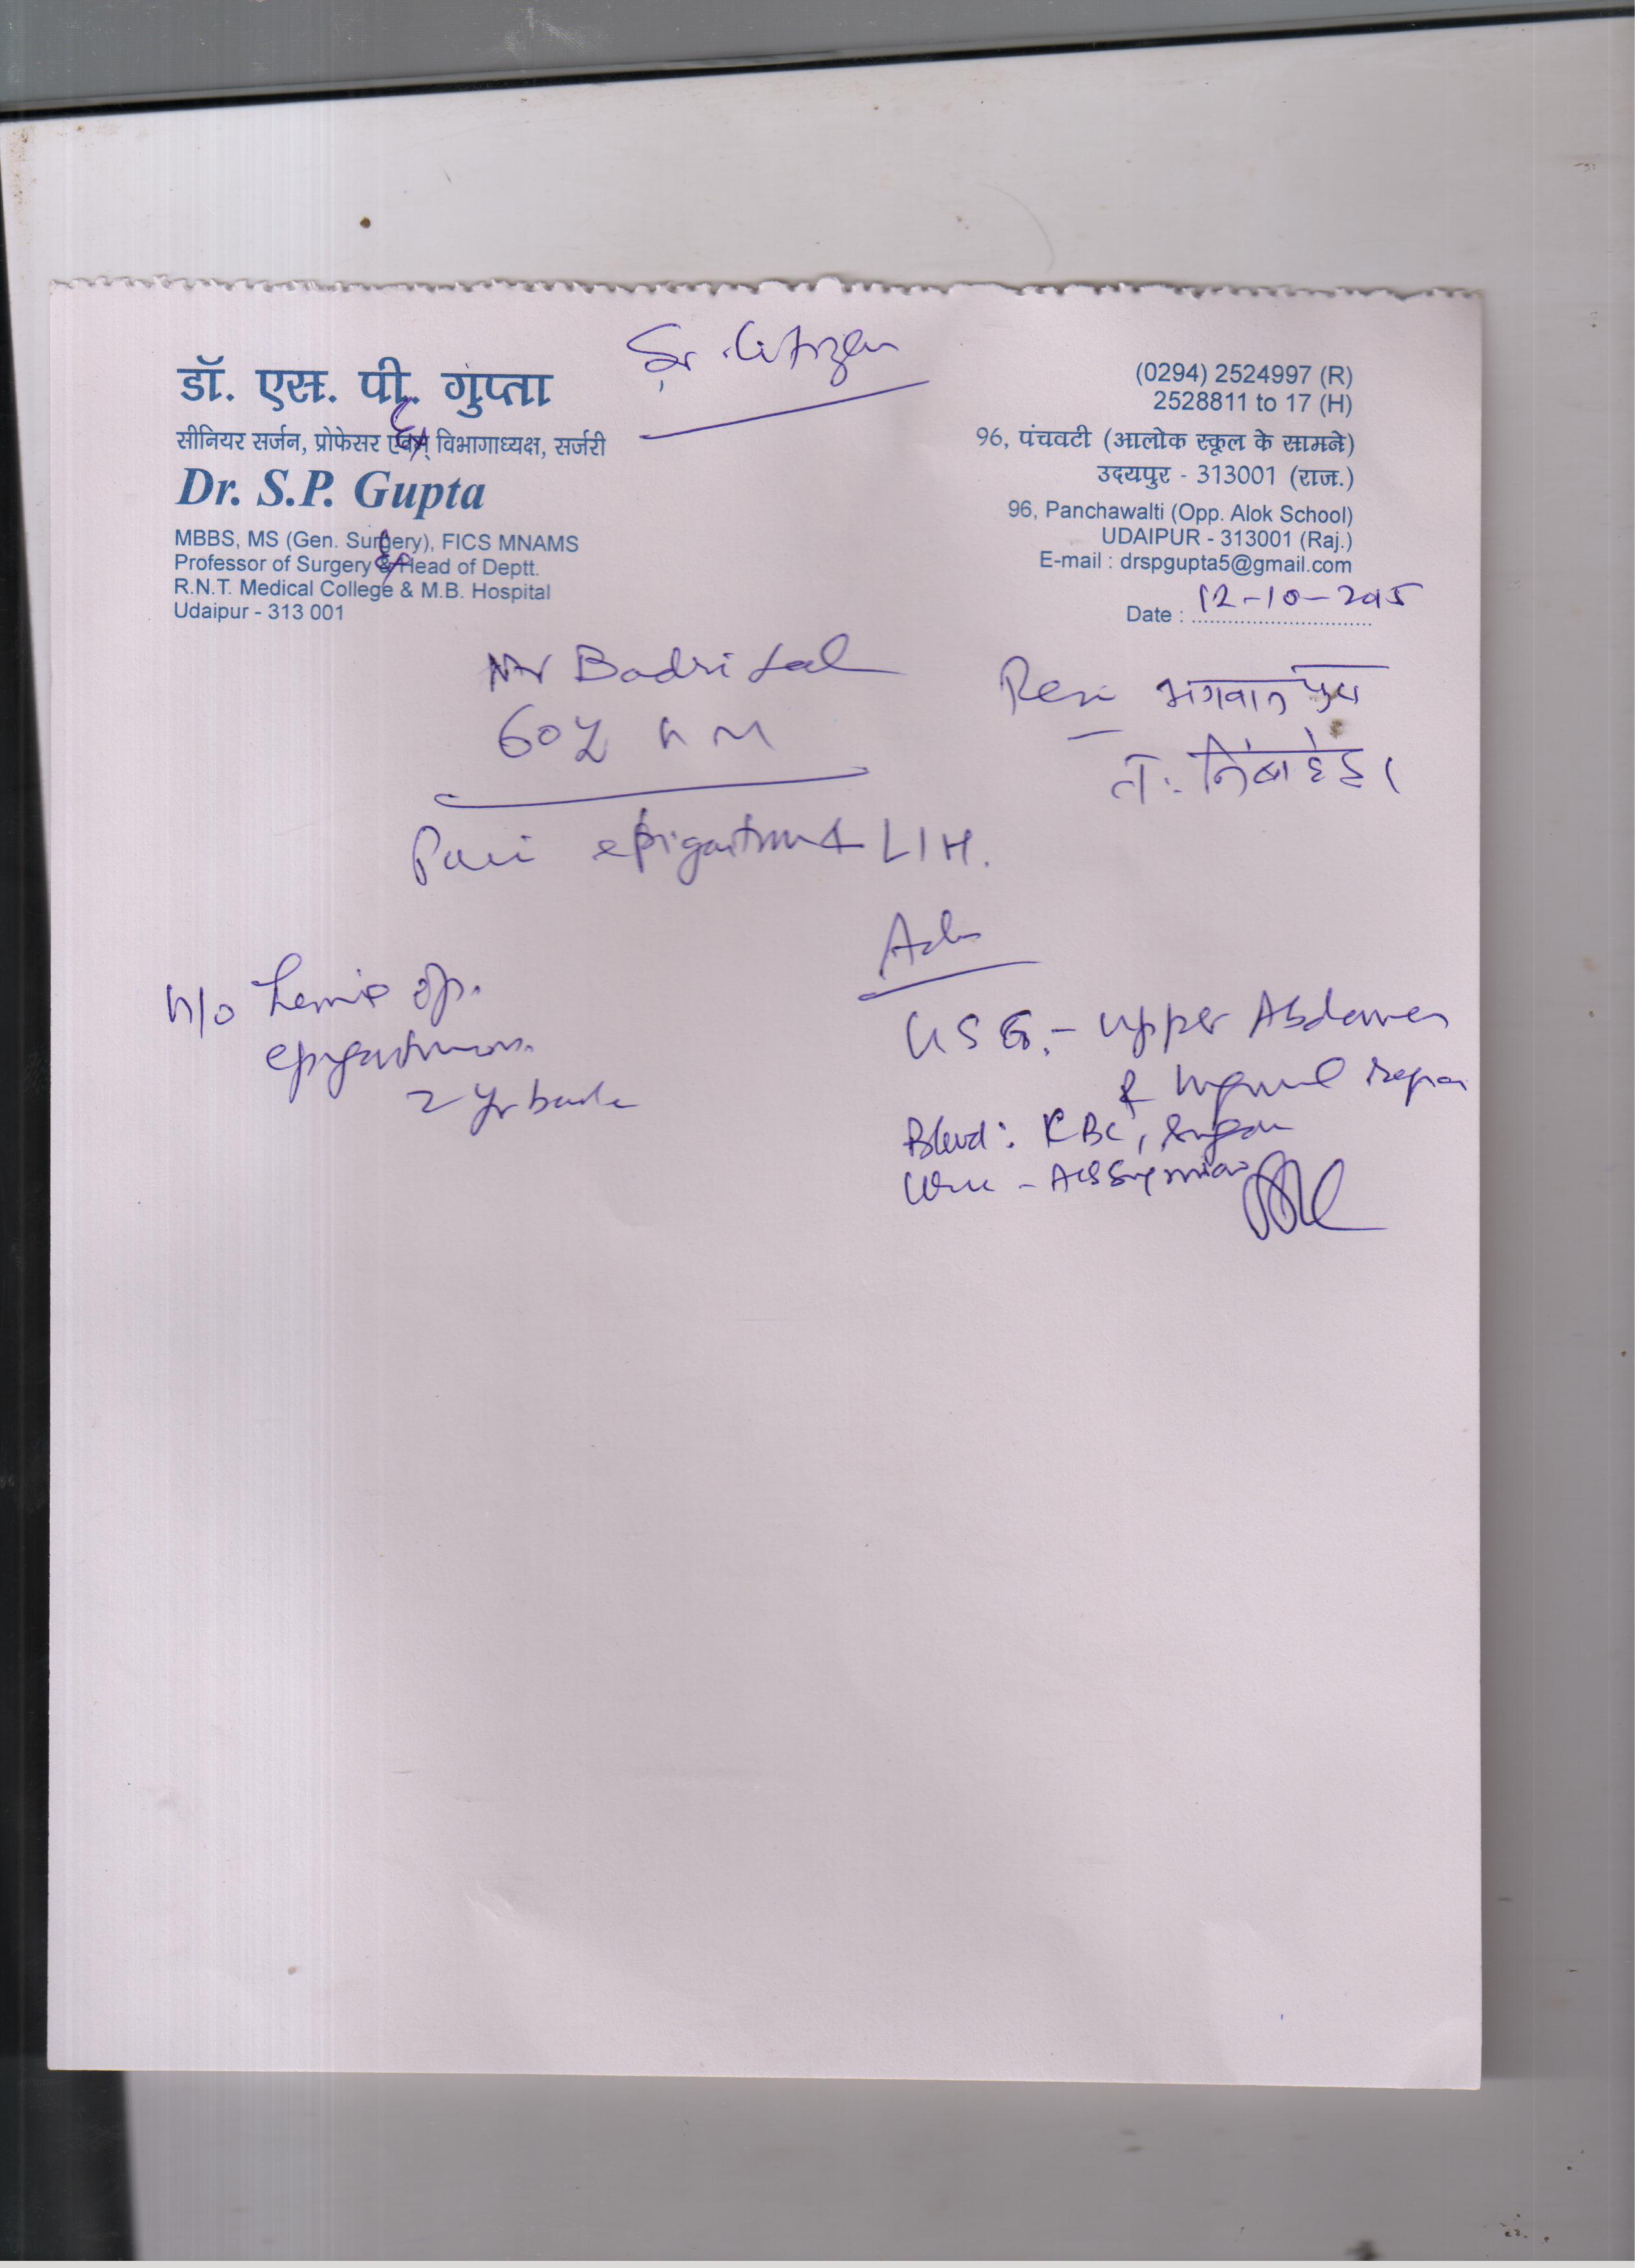 Sr. Citizen
डॉ. एस. पी. गुप्ता
सीनियर सर्जन, प्रोफेसर एवम् विभागाध्यक्ष, सर्जरी
Dr. S.P. Gupta
MBBS, MS (Gen. Surgery), FICS MNAMS
Professor of Surgery & Head of Deptt.
R.N.T. Medical College & M.B. Hospital
Udaipur - 313 001
(0294) 2524997 (R)
2528811 to 17 (H)
96, पंचवटी (आलोक स्कूल के सामने)
उदयपुर - 313001 (राज.)
96, Panchawalti (Opp. Alok School)
UDAIPUR - 313001 (Raj.)
E-mail : drspgupta5@gmail.com
Date : 12-10-2015
Mr Badri Lal
60y M
भगवानपुरा
निंबाहेड़ा
Pain epigastrium & LIH.
H/o hernia op.
epigastrium
2 yr back
Adv
USG - Upper Abdomen
& Inguinal region
Blood: CBC, Sugar